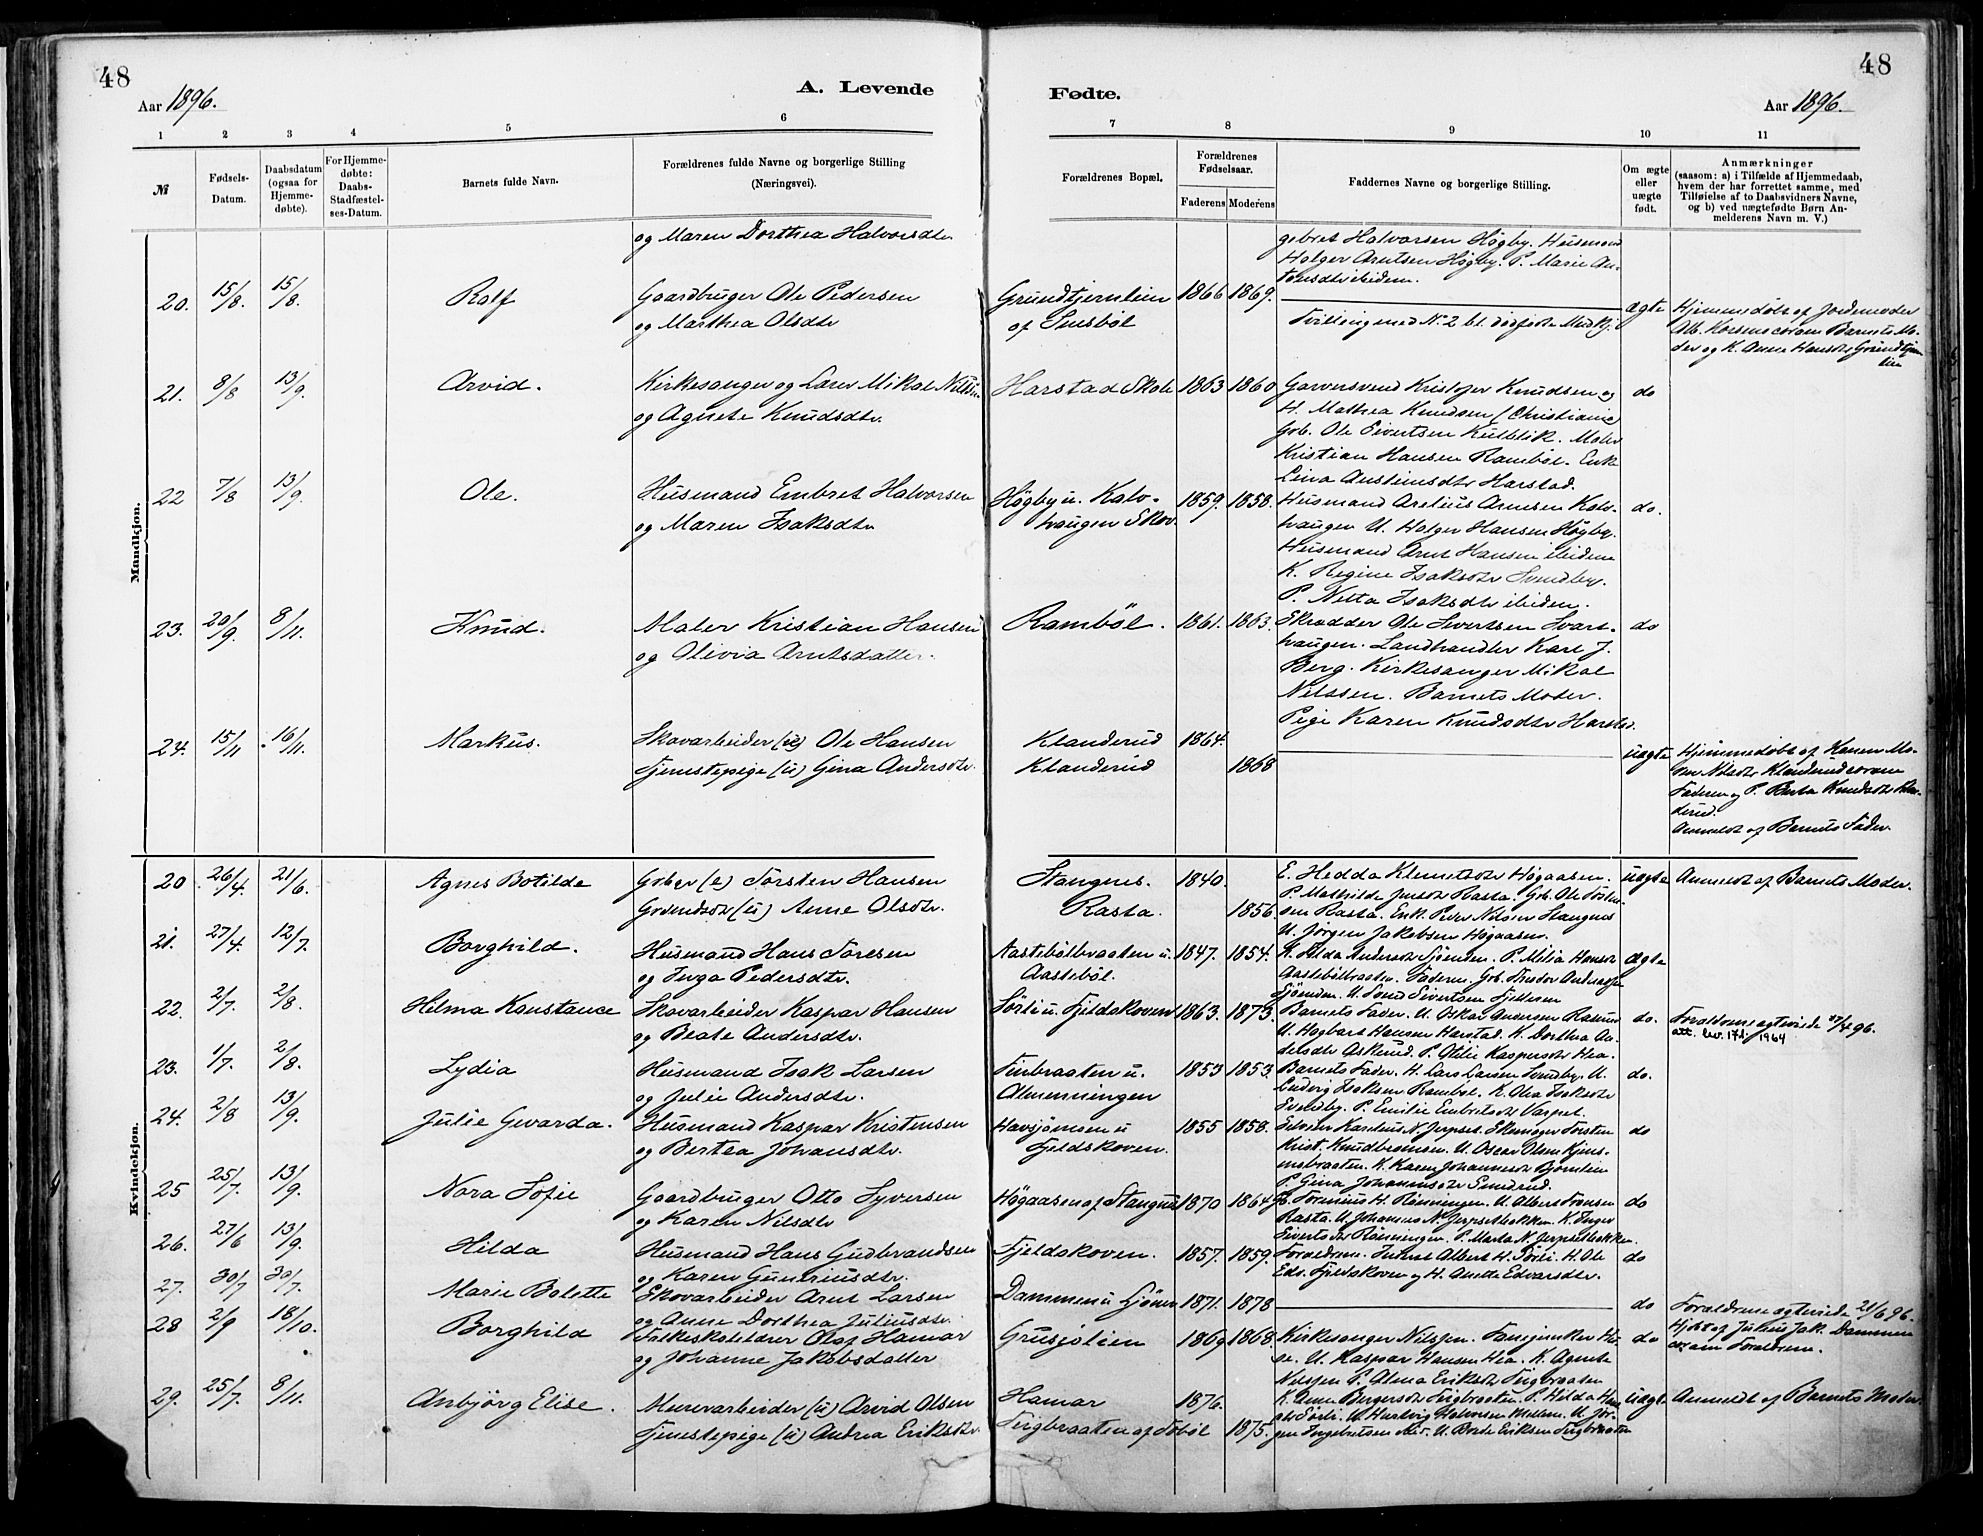 48
Aar 1896.
A. Levende
Fødte.
Aar 1896.
48
1 2 3 4 5 6 7 8 9 10 11
№
Fødsels-
Datum.
Daabsdatum
(ogsaa for
Hjemme-
døbte).
For Hjemme-
døbte:
Daabs-
Stadfæstel-
ses-Datum.
Barnets fulde Navn.
Forældrenes fulde Navne og borgerlige Stilling
(Næringsvei).
Forældrenes Bopæl.
Forældrenes
Fødselsaar.
Faderens Moderens
Faddernes Navne og borgerlige Stilling.
Om ægte
eller
uægte
født.
Anmærkninger
(saasom: a) i Tilfælde af Hjemmedaab,
hvem der har forrettet samme, med
Tilføielse af to Daabsvidners Navne,
og b) ved uægtefødte Børn An-
melderens Navn m. V.)
Mandkjøn.
og Maren Dorthea Halvorsdtr.
gebret Halvorsen Høgby. Husmand
Holger Arntsen Høgby. P. Marie An-
tonsdtr ibidem.
20. 15/8. 15/8. Rolf
Gaardbruger Ole Pedersen
og Marthea Olsdtr
Grundtjernlien
af Snesbøl
1866 1869.
Tvilling med N. 2 bl. dødfødte Mndkj.
Ægte
Hjemmedøbt af Jordemoder
Alb. Korsmo coram Barnets Mo-
der og K. Anne Hansdtr Grundtjern
lien
21. 8/8 13/9. Arvid.
Kirkesanger og Lærer Mikal Nilssen
og Agnete Knudsdtr.
Harstad Skole 1863 1860
Garversvend Kristofer Knudsen og
H. Mathea Knudsen (Christiania)
Gvb. Ole Sivertsen Kulblik. Maler
Kristian Hansen Rambøl. Enk
Lina Austinsdtr Harstad.
do
22 7/8 13/9. Ole.
Husmand Embret Halvorsen
og Maren Isaksdtr
Høgby u. Kalv-
haugen Skov.
1859. 1858.
Husmand Arelius Arnesen Kalv-
haugen U. Holger Hansen Høgby.
Husmand Arnt Hansen ibidem
K. Regine Isaksdtr Svendby.
P. Netta Isaksdtr ibidem.
do.
23. 20/9. 8/11. Knud.
Maler Kristian Hansen
og Olivia Arntsdatter.
Rambøl. 1861. 1863.
Skrædder Ole Sivertsen Svart-
haugen. Landhandler Karl J.
Berg. Kirkesanger Mikal
Nilssen. Barnets Moder.
Pige Karen Knudsdtr Harstad.
do
24. 15/11 16/11. Markus.
Skovarbeider (u) Ole Hansen
Tjenestepige (u) Gina Andersdtr.
Klanderud 1864.
Klanderud 1868
uægte
Hjemmedøbt af Konen Ma-
ren Nilsdtr Klanderud coram
Faderen og P. Berta Knudsdtr Klan-
derud.
Anmeldt af Barnets Fader.
Kvindekjøn.
20 26/4. 21/6. Agnes Botilde
Gvbgr (e) Torsten Hansen
(u) Anne Olsdtr.
Stangnes. 1840.
Rasta. 1856.
E. Hedda Klemetsdtr Høgaasen.
P. Mathilde Jensdtr Rasta. Gvb. Ole Torsten-
sen Rasta. Enk. Peder Nilsen Stangnes
U. Jørgen Jakobsen Høgaasen.
uægte
Anmeldt af Barnets Moder.
21. 27/4. 12/7. Borghild.
Husmand Hans Toresen
og Inga Pedersdtr.
Aastebølbraaten u.
Aastebøl.
1847. 1854.
K. Hilda Andersdtr Sjøenden. P. Milia Hansdtr
Aastebølbraaten. Faderen. Gvb. Theodor Andreassen
Sjøenden. U. Sivertsen Fjeldskoven
Ægte
22. 2/7. 2/8. Hilma Konstance
Skovarbeider Kaspar Hansen
og Beate Andersdtr.
Sørli u. Fjeldskoven 1863. 1873.
Barnets Fader. U. Oskar Andersen
U. Hagbart Hansen Harstad. K. Dorthea An-
dersdtr Askerud. P. Otilie Kaspersdtr Hea.
do.
Forældrene egteviede 27/4 96.
att. lev. 17/1 1964
23. 1/7. 2/8. Lydia
Husmand Isak Larsen
og Julie Andersdtr.
Finbraaten u.
Almenningen
1853 1853.
Barnets Fader. H. Lars Larsen Svendby. U.
Ludvig Isaksen Rambøl. K. Olea Isaksdtr
Svendby. P. Emilie Embretsdtr Varpet.
do.
24. 2/8 13/9. Julie Gevarda.
Husmand Kaspar Kristensen
og Bertea Johansdtr.
Havsjømoen u
Fjeldskoven.
1855 1858.
Selveier Karelius N. Jerpset. Skomager Torsten
Krist. Knudbromoen. U. Oscar Olsen Kjens-
mobraaten. K. Karen Johannesdtr Bjørnlien
P. Gina Johannesdtr Smedrud.
do
25 25/7. 13/9. Nora Sofie
Gaardbruger Otto Syversen
og Karen Nilsdtr
Høgaasen af Stangnes 1870 1864
Gb. Torenius H. Rønningen. U. Albert Fronsen
Rasta. U. Johannes N. Jerpsetbakken. K. Inger
Sivertsdtr Rønningen. P. Marta N. Jerpsetbakken.
do
26. 27/6 13/9. Hilda
Husmand Hans Gudbrandsen
og Karen Gunriusdtr.
Fjeldskoven. 1857. 1859.
Forældrene. Inderst Albert H. Sørli. H. Ole
Eds. Fjeldskoven og H. Anette Edvarsdtr.
do
27. 30/7 30/7. Marie Bolette
Skovarbeider Arnt Larsen
og Anne Dorthea Juliusdtr.
Dammen u Sjøner 1871. 1878
do
Forældrene egteviede 21/6 96.
Hjdbt af Julius Jak. Dammen
coram Forældrene.
28 2/9 18/10. Borghild
Folkeskolelærer Olaf Hamar
og Johanne Jakobsdatter
Grusjølien 1869 1868.
Kirkesanger Nilssen. Fanejunker Ho-
pe. U. Kaspar Hansen Hea. K. Agnete
Nilssen P. Alma Eriksdtr Tvigbraaten
do
29. 25/7. 8/11. Anbjørg Elise.
Murerarbeider (u) Arvid Olsen
Tjenestepige (u) Andrea Eriksdtr.
Hamar 1876.
Tvigbraaten af Tobøl 1875.
K. Anne Børgersdtr Tvigbraaten. P. Hilda Han-
sdtr Sørli. U. Hartvig Halvorsen Melem. U. Jør-
gen Ingebretsen Mel. U. Brede Eriksen Tvigbraaten
uægt.
Anmeldt af Barnets Moder.